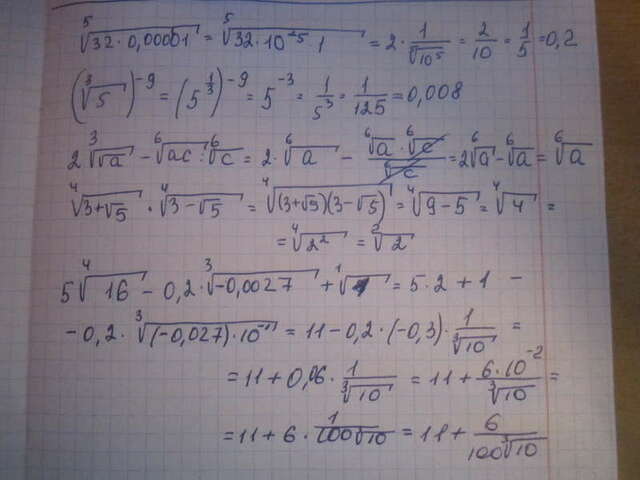 ⁵√32·0,00001 = ⁵√32·10⁻⁵·1 = 2·1/⁵√10⁵ = 2/10 = 1/5 = 0,2
(³√5)⁻⁹ = (5^(1/3))⁻⁹ = 5⁻³ = 1/5³ = 1/125 = 0,008
2 ³√√a − ⁶√ac : ⁶√c = 2·⁶√a − (⁶√a·⁶√c)/⁶√c = 2⁶√a − ⁶√a = ⁶√a
⁴√3+√5 · ⁴√3−√5 = ⁴√(3+√5)(3−√5) = ⁴√9−5 = ⁴√4 =
= ⁴√2² = ²√2
5 ⁴√16 − 0,2·³√−0,0027 + ¹√1 = 5·2 + 1 −
− 0,2·³√(−0,027)·10⁻¹ = 11 − 0,2·(−0,3)·1/³√10 =
= 11 + 0,06·1/³√10 = 11 + 6·10⁻²/³√10 =
= 11 + 6·1/100³√10 = 11 + 6/100³√10